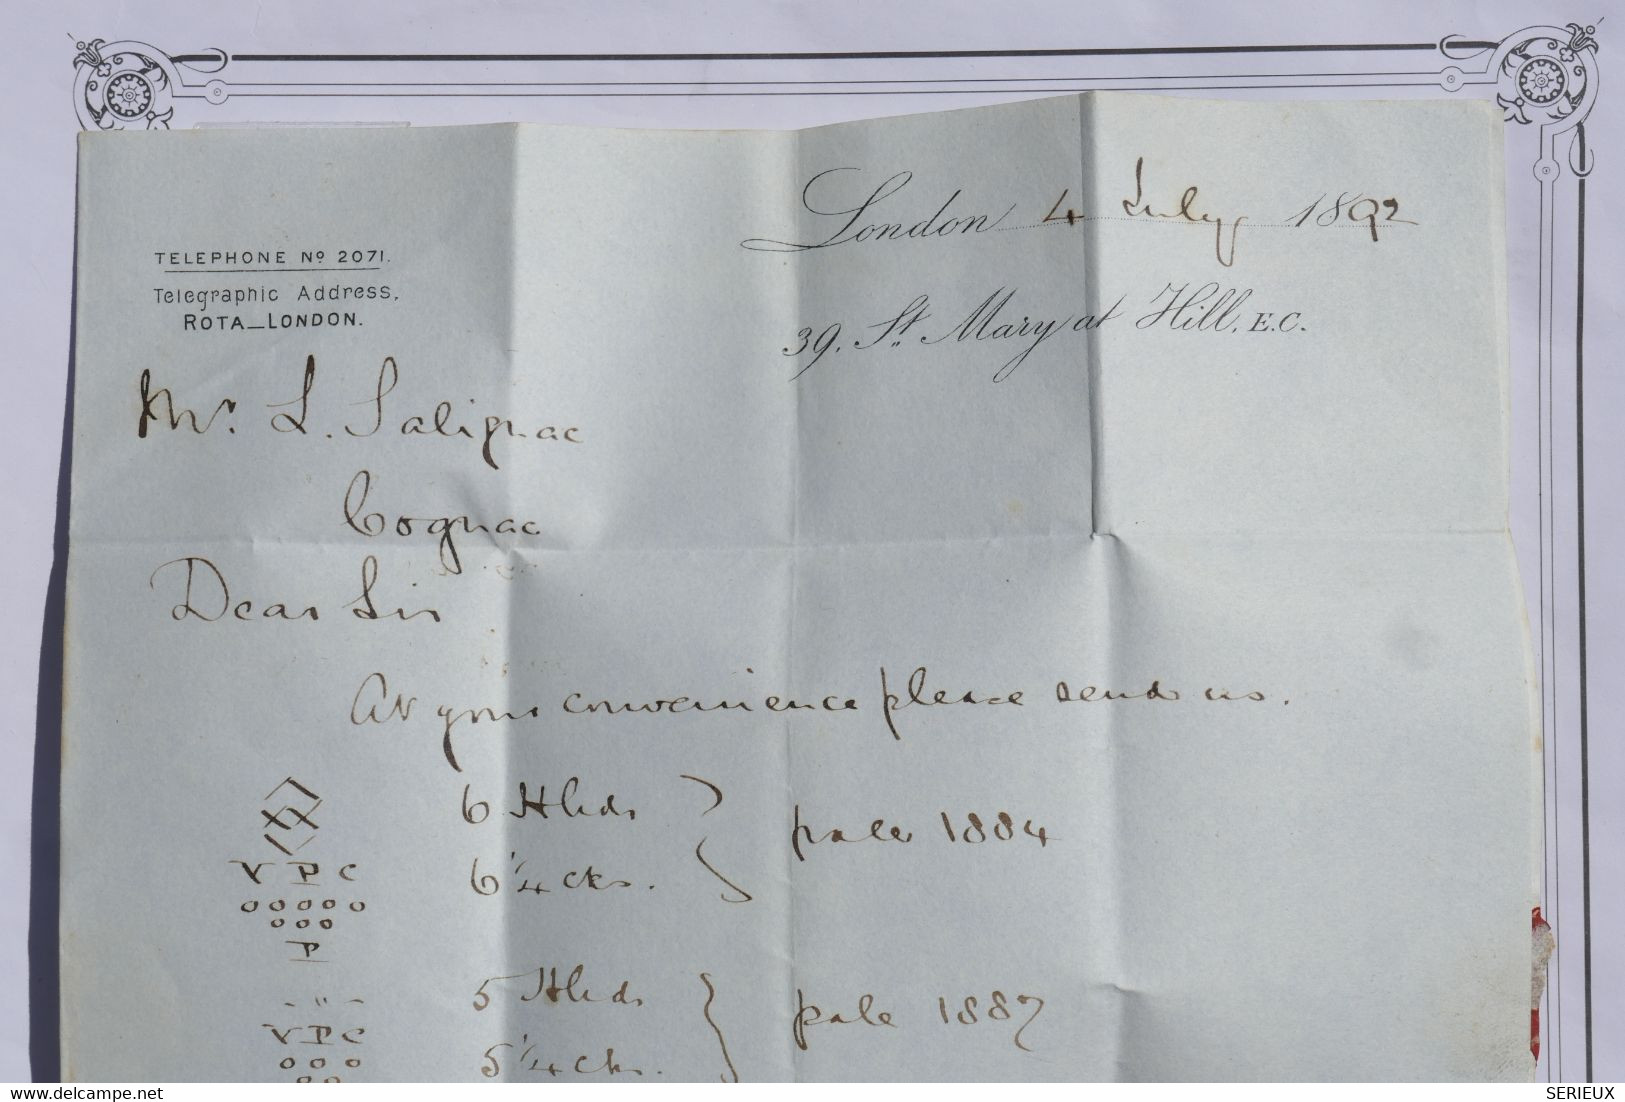 London 4 July 1892
TELEPHONE Nº 2071.
Telegraphic Address,
ROTA_LONDON.
39, St. Mary at Hill, E.C.
Mr. L. Salignac
Cognac
Dear Sir
At your convenience please send us.
6 Hhds } pale 1884
V P C 6 ¼ cks. }
o o o o o
o o o
P
5 Hhds } pale 1887
- " -
V P C
5 ¼ cks. }
o o o
delcampe.net
SERIEUX